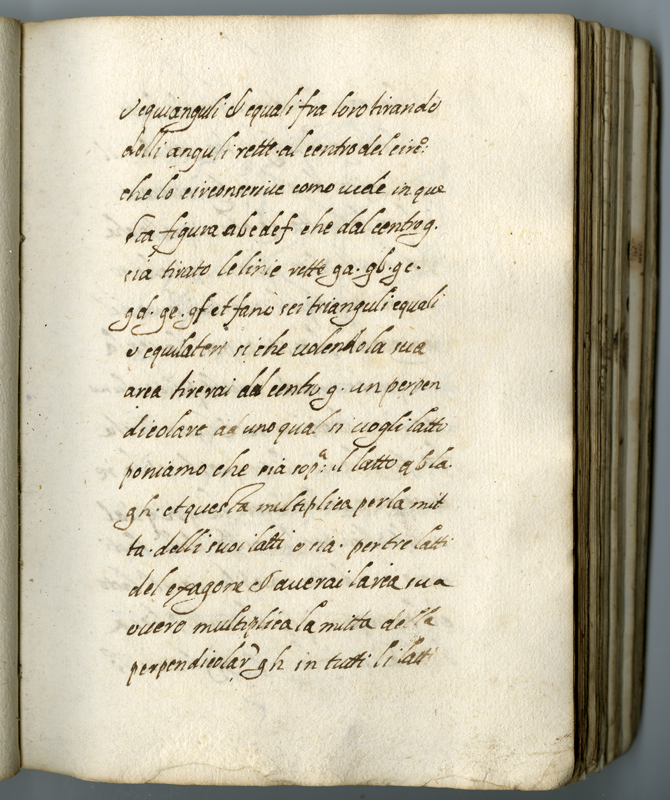 e equianguli et equali fra loro tirando
delli anguli rette al centro del circ.º:
che lo circonscrive como vede in que
sta figura abcdef che dal centro g.
sia tirato le linie rette ga. gb. gc.
gd. ge. gf et fano sei trianguli equali
e equilateri si che volendo la sua
area tirerai dal centro g. un perpen
dicolare ad uno qual si vogli latto
poniamo che sia sop.ª: il latto ab la.
gh. et questa multiplica per la mit
ta. delli suoi latti o sia. per tre latti
del exagone et averai larea sua
overo multiplica la mitta della
perpendicolar gh in tutti li latti